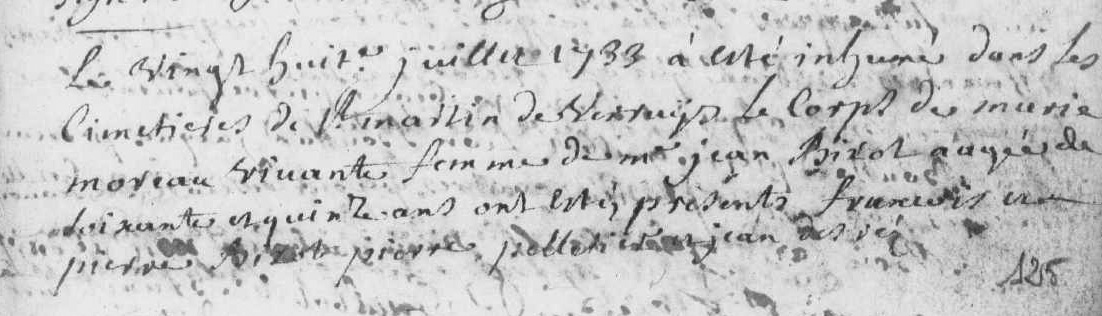 Le vingt huit.e juillet 1733 à esté inhumé dans les
Cimetieres de St martin de Verruye le Corps de marie
moreau vivante femme de me jean Birot aagée de
soixante et quinze ans ont estés présents francois et
pierre Birot pierre pelletier et jean
125